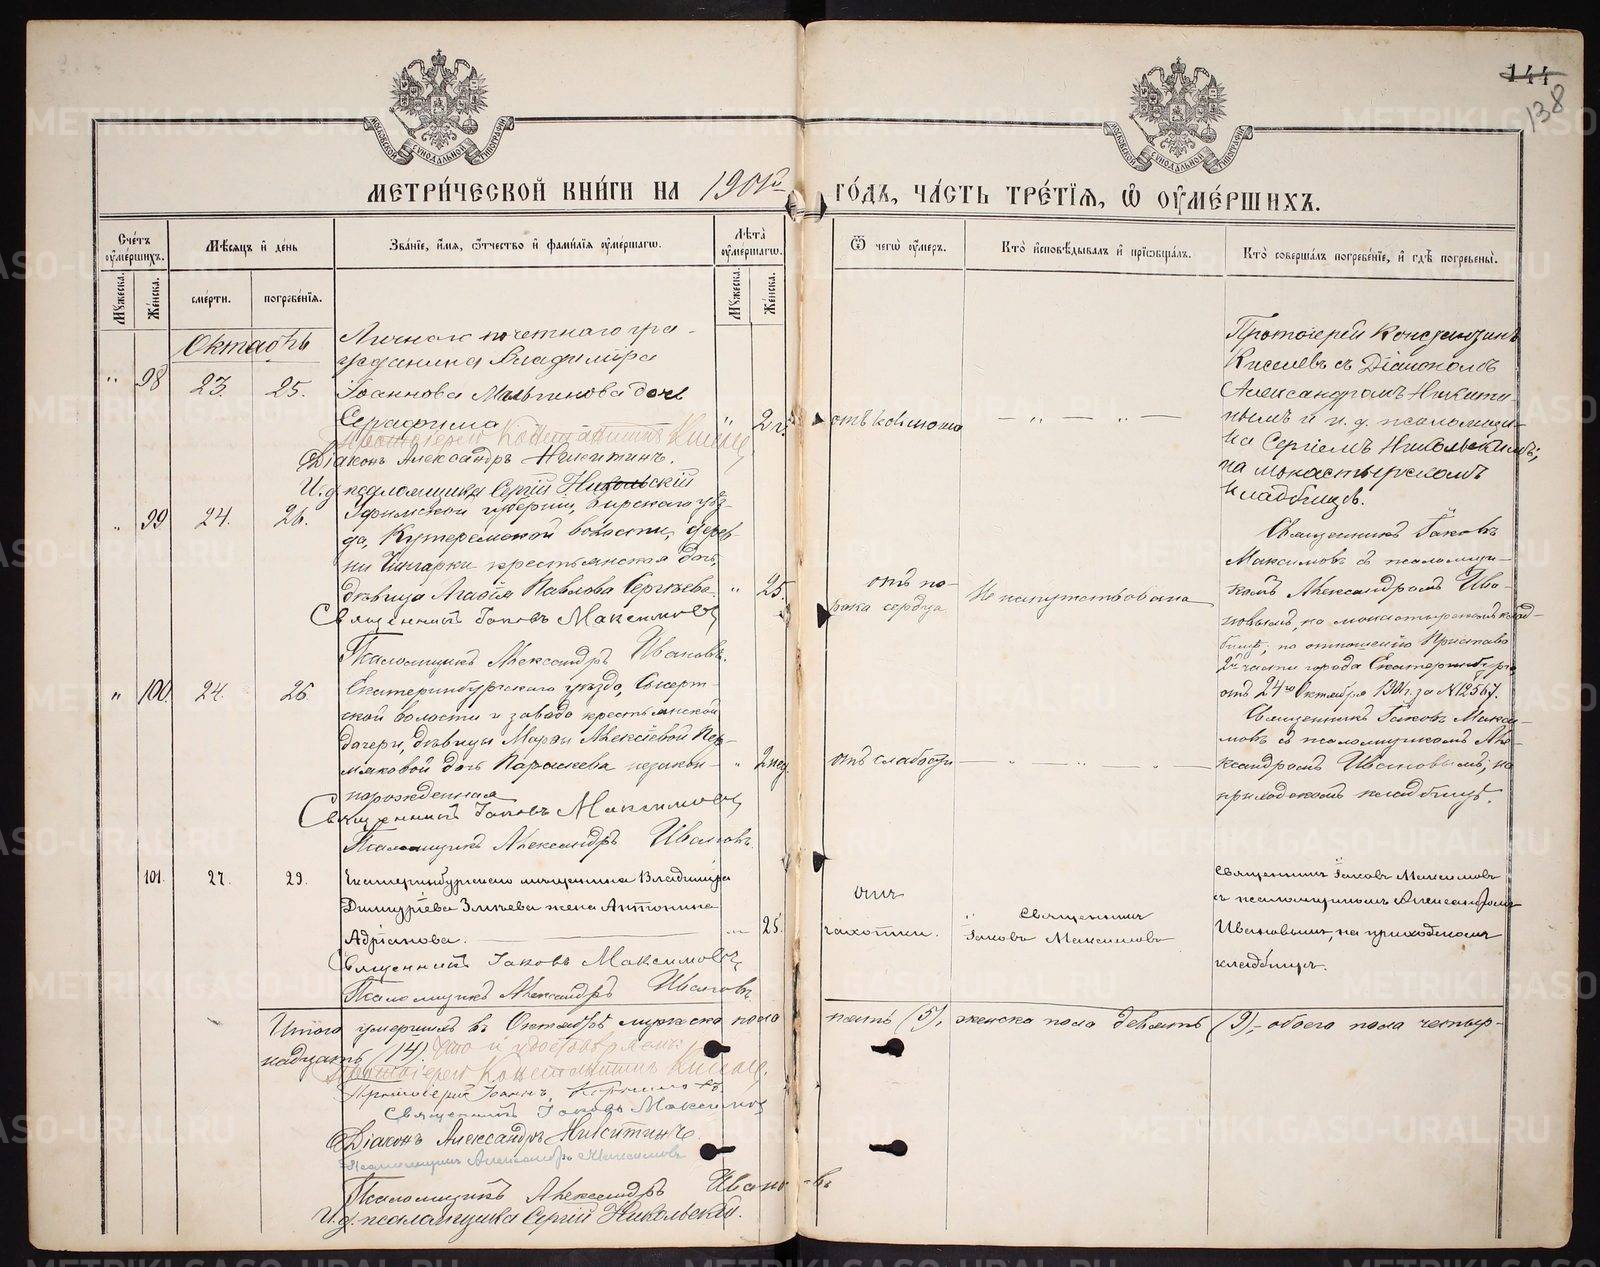 144
138
МОСКОВСКОЙ СѴНОДАЛЬНОЙ ТИПОГРАФІИ
МОСКОВСКОЙ СѴНОДАЛЬНОЙ ТИПОГРАФІИ
МЕТРИ́ЧЕСКОЙ КНИ́ГИ НА 1901й ГО́ДЪ, ЧА́СТЬ ТРЕ́ТІЯ, Ѡ҆ ОУ҆МЕ́РШИХЪ.
Сче́тъ оу҆ме́ршихъ.
Мѣ́сяцъ и҆ де́нь
Зва́ніе, и҆́мя, ѻ҆́тчество и҆ фами́лія оу҆ме́ршагѡ.
Лѣта̀ оу҆ме́ршагѡ.
Ѿ чегѡ̀ оу҆́меръ.
Кто̀ и҆сповѣ́дывалъ и҆ прїѡбща́лъ.
Кто̀ соверша́лъ погребе́нїе, и҆ гдѣ̀ погребены̀.
Мꙋ́жеска. Же́нска. сме́рти. погребе́нїя. Мꙋ́жеска. Же́нска.
Октябрь
" 98 23. 25.
Личнаго почетнаго гра-
жданина Владиміра
Іоаннова дочь
Серафима " 2 г.
Протоіерей Константинъ
Діаконъ Александръ Никитинъ.
И. д. псаломщика Сергій Никольскій
— " — " —
Протоіерей Константинъ
съ Діакономъ
Александромъ Никити-
нымъ и и. д. псаломщи-
ка Сергіемъ Никольскимъ;
на монастырскомъ
кладбищѣ.
" 99 24. 26.
Уфимской губерніи, Бирскаго уѣз-
да, волости, дерев-
ни крестьянская дочь,
дѣвица Агафія Павлова Сергѣева " 25.
Священникъ Іаковъ Максимовъ
Псаломщикъ Александръ Ивановъ.
отъ по-
рока сердца
Не напутствована
Священникъ Іаковъ
Максимовъ съ псаломщи-
комъ Александромъ Ива-
новымъ, на монастырскомъ клад-
бищѣ, по отношенію Пристава
2й части города Екатеринбурга
отъ 24го Октября 1901 г. за № 12567.
" 100 24. 26
Екатеринбургскаго уѣзда, Сысерт-
ской волости и завода крестьянской
дочери, дѣвицы Марѳы Алексѣевой Пер-
мяковой дочь Параскева незакон- " 2 нед.
норожденная
Священникъ Іаковъ Максимовъ
Псаломщикъ Александръ Ивановъ.
отъ слабости
— " — " — " —
Священникъ Іаковъ Макси-
мовъ съ псаломщикомъ Але-
ксандромъ Ивановымъ; на
приходскомъ кладбищѣ.
101. 27. 29.
Екатеринбургскаго мѣщанина Владиміра
Димитріева жена Антонина
Адріанова. 25.
Священникъ Іаковъ Максимовъ
Псаломщикъ Александръ Ивановъ
отъ
чахотки.
Священникъ
Іаковъ Максимовъ
Священникъ Іаковъ Максимовъ
съ псаломщикомъ Александромъ
Ивановымъ, на приходскомъ
кладбищѣ.
Итого умершихъ въ Октябрѣ мужеска пола пять (5), женска пола девять (9), обоего пола четыр-
надцать (14). Что и удостовѣряемъ:
Протоіерей Константинъ
Протоіерей Іоаннъ
Священникъ Іаковъ Максимовъ
Діаконъ Александръ Никитинъ.
Псаломщикъ Александръ
Псаломщикъ Александръ Ивановъ
И. д. псаломщика Сергій Никольскій.
METRIKI.GASO-URAL.RU